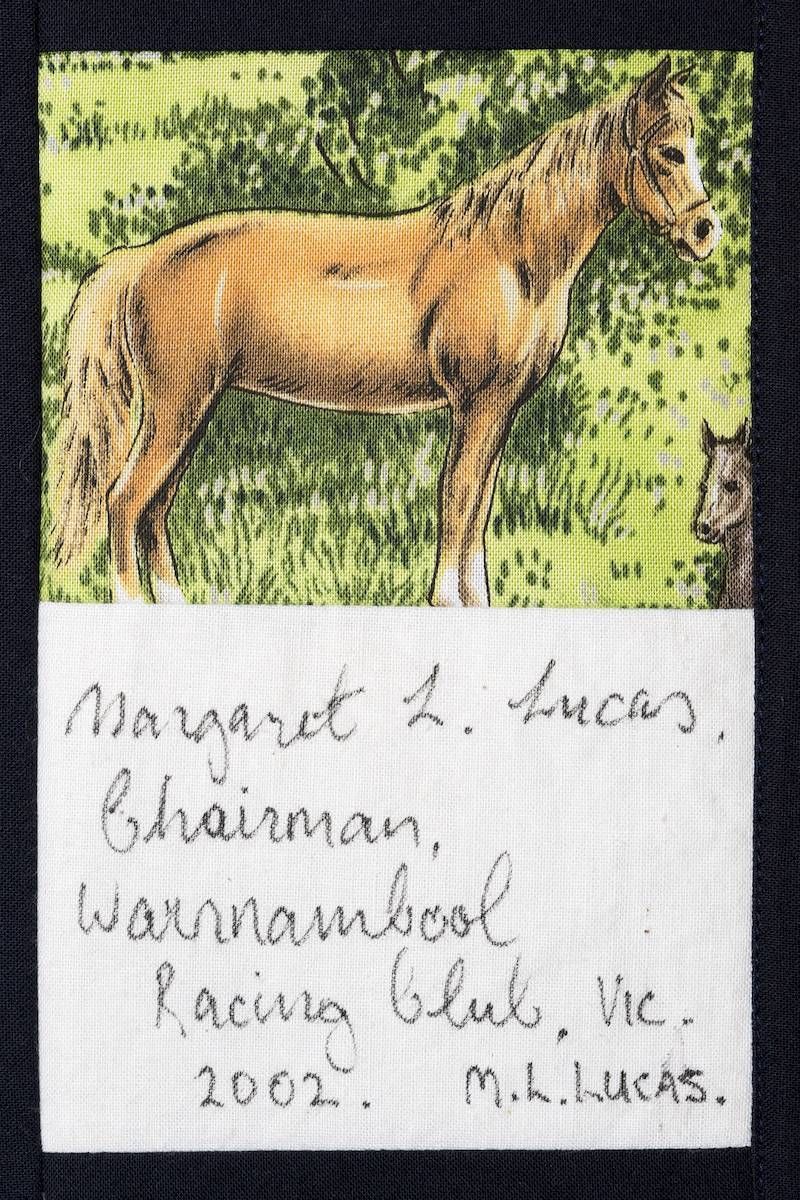 Margaret L. Lucas.
Chairman,
Warrnambool
Racing Club, Vic.
2002. M.L.LUCAS.